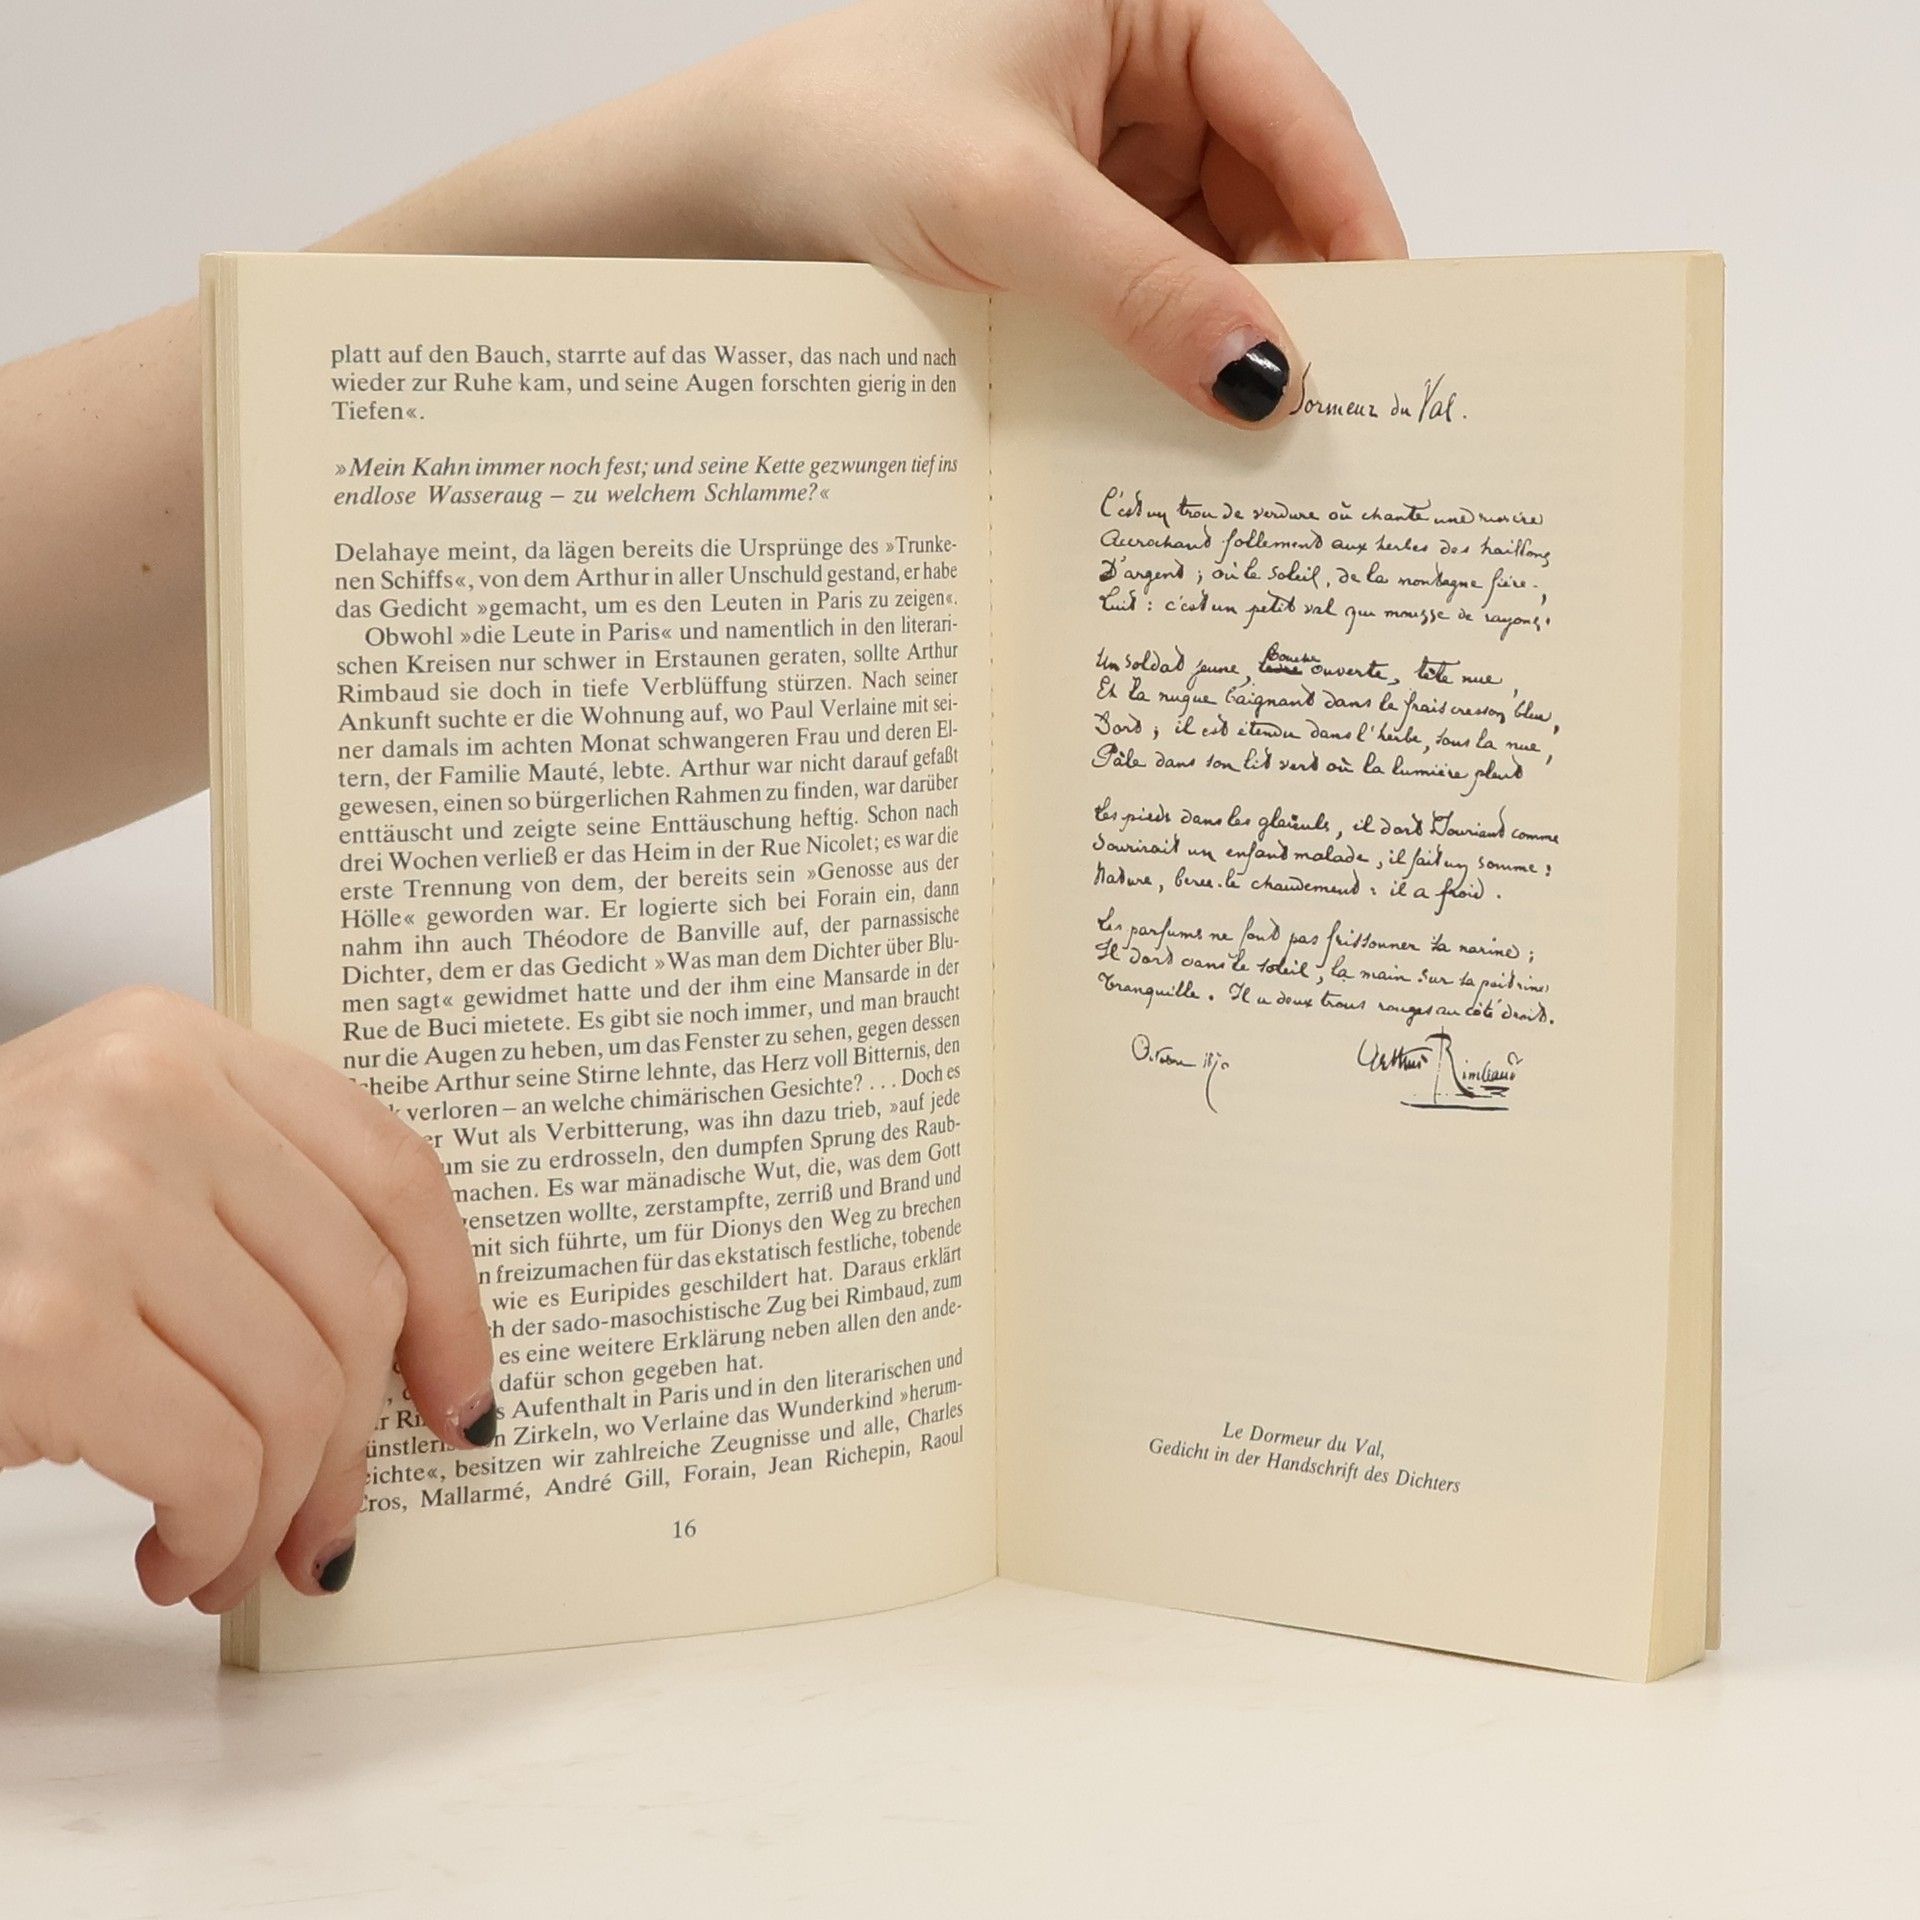 platt auf den Bauch, starrte auf das Wasser, das nach und nach
wieder zur Ruhe kam, und seine Augen forschten gierig in den
Tiefen«.
»Mein Kahn immer noch fest; und seine Kette gezwungen tief ins
endlose Wasseraug – zu welchem Schlamme?«
Delahaye meint, da lägen bereits die Ursprünge des »Trunke-
nen Schiffs«, von dem Arthur in aller Unschuld gestand, er habe
das Gedicht »gemacht, um es den Leuten in Paris zu zeigen«.
Obwohl »die Leute in Paris« und namentlich in den literari-
schen Kreisen nur schwer in Erstaunen geraten, sollte Arthur
Rimbaud sie doch in tiefe Verblüffung stürzen. Nach seiner
Ankunft suchte er die Wohnung auf, wo Paul Verlaine mit sei-
ner damals im achten Monat schwangeren Frau und deren El-
tern, der Familie Mauté, lebte. Arthur war nicht darauf gefaßt
gewesen, einen so bürgerlichen Rahmen zu finden, war darüber
enttäuscht und zeigte seine Enttäuschung heftig. Schon nach
drei Wochen verließ er das Heim in der Rue Nicolet; es war die
erste Trennung von dem, der bereits sein »Genosse aus der
Hölle« geworden war. Er logierte sich bei Forain ein, dann
nahm ihn auch Théodore de Banville auf, der parnassische
Dichter, dem er das Gedicht »Was man dem Dichter über Blu-
men sagt« gewidmet hatte und der ihm eine Mansarde in der
Rue de Buci mietete. Es gibt sie noch immer, und man braucht
nur die Augen zu heben, um das Fenster zu sehen, gegen dessen
cheibe Arthur seine Stirne lehnte, das Herz voll Bitternis, den
k verloren – an welche chimärischen Gesichte? . . . Doch es
er Wut als Verbitterung, was ihn dazu trieb, »auf jede
um sie zu erdrosseln, den dumpfen Sprung des Raub-
machen. Es war mänadische Wut, die, was dem Gott
gensetzen wollte, zerstampfte, zerriß und Brand und
mit sich führte, um für Dionys den Weg zu brechen
n freizumachen für das ekstatisch festliche, tobende
wie es Euripides geschildert hat. Daraus erklärt
h der sado-masochistische Zug bei Rimbaud, zum
es eine weitere Erklärung neben allen den ande-
dafür schon gegeben hat.
s Aufenthalt in Paris und in den literarischen und
ünstleris n Zirkeln, wo Verlaine das Wunderkind »herum-
eichte«, besitzen wir zahlreiche Zeugnisse und alle, Charles
Cros, Mallarmé, André Gill, Forain, Jean Richepin, Raoul
16
Dormeur du Val.
C'est un trou de verdure où chante une rivière
Accrochant follement aux herbes des haillons
D'argent ; où le soleil, de la montagne fière,
Luit : c'est un petit val qui mousse de rayons.
Un soldat jeune, bouche ouverte, tête nue,
Et la nuque baignant dans le frais cresson bleu,
Dort ; il est étendu dans l'herbe, sous la nue,
Pâle dans son lit vert où la lumière pleut
Les pieds dans les glaïeuls, il dort. Souriant comme
Sourirait un enfant malade, il fait un somme :
Nature, berce-le chaudement : il a froid.
Les parfums ne font pas frissonner sa narine ;
Il dort dans le soleil, la main sur sa poitrine
Tranquille. Il a deux trous rouges au côté droit.
Octobre 1870
Arthur Rimbaud
Le Dormeur du Val,
Gedicht in der Handschrift des Dichters